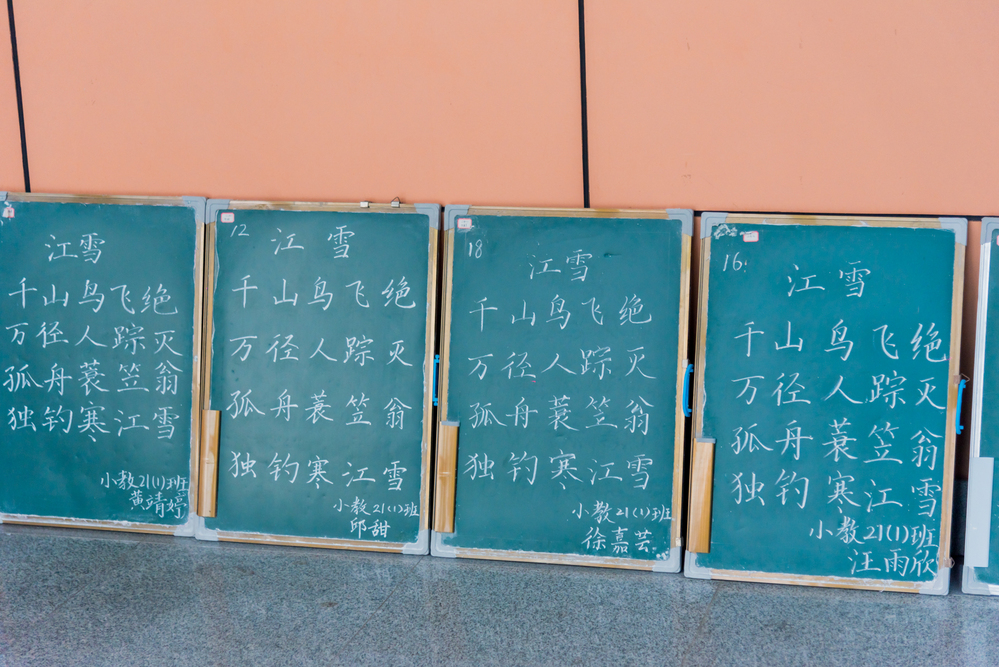 江雪
千山鸟飞绝
万径人踪灭
孤舟蓑笠翁
独钓寒江雪
小教21(1)班
黄靖婷
12
江雪
千山鸟飞绝
万径人踪灭
孤舟蓑笠翁
独钓寒江雪
小教21(1)班
邱甜
18
江雪
千山鸟飞绝
万径人踪灭
孤舟蓑笠翁
独钓寒江雪
小教21(1)班
徐嘉芸
16.
江雪
千山鸟飞绝
万径人踪灭
孤舟蓑笠翁
独钓寒江雪
小教21(1)班
汪雨欣